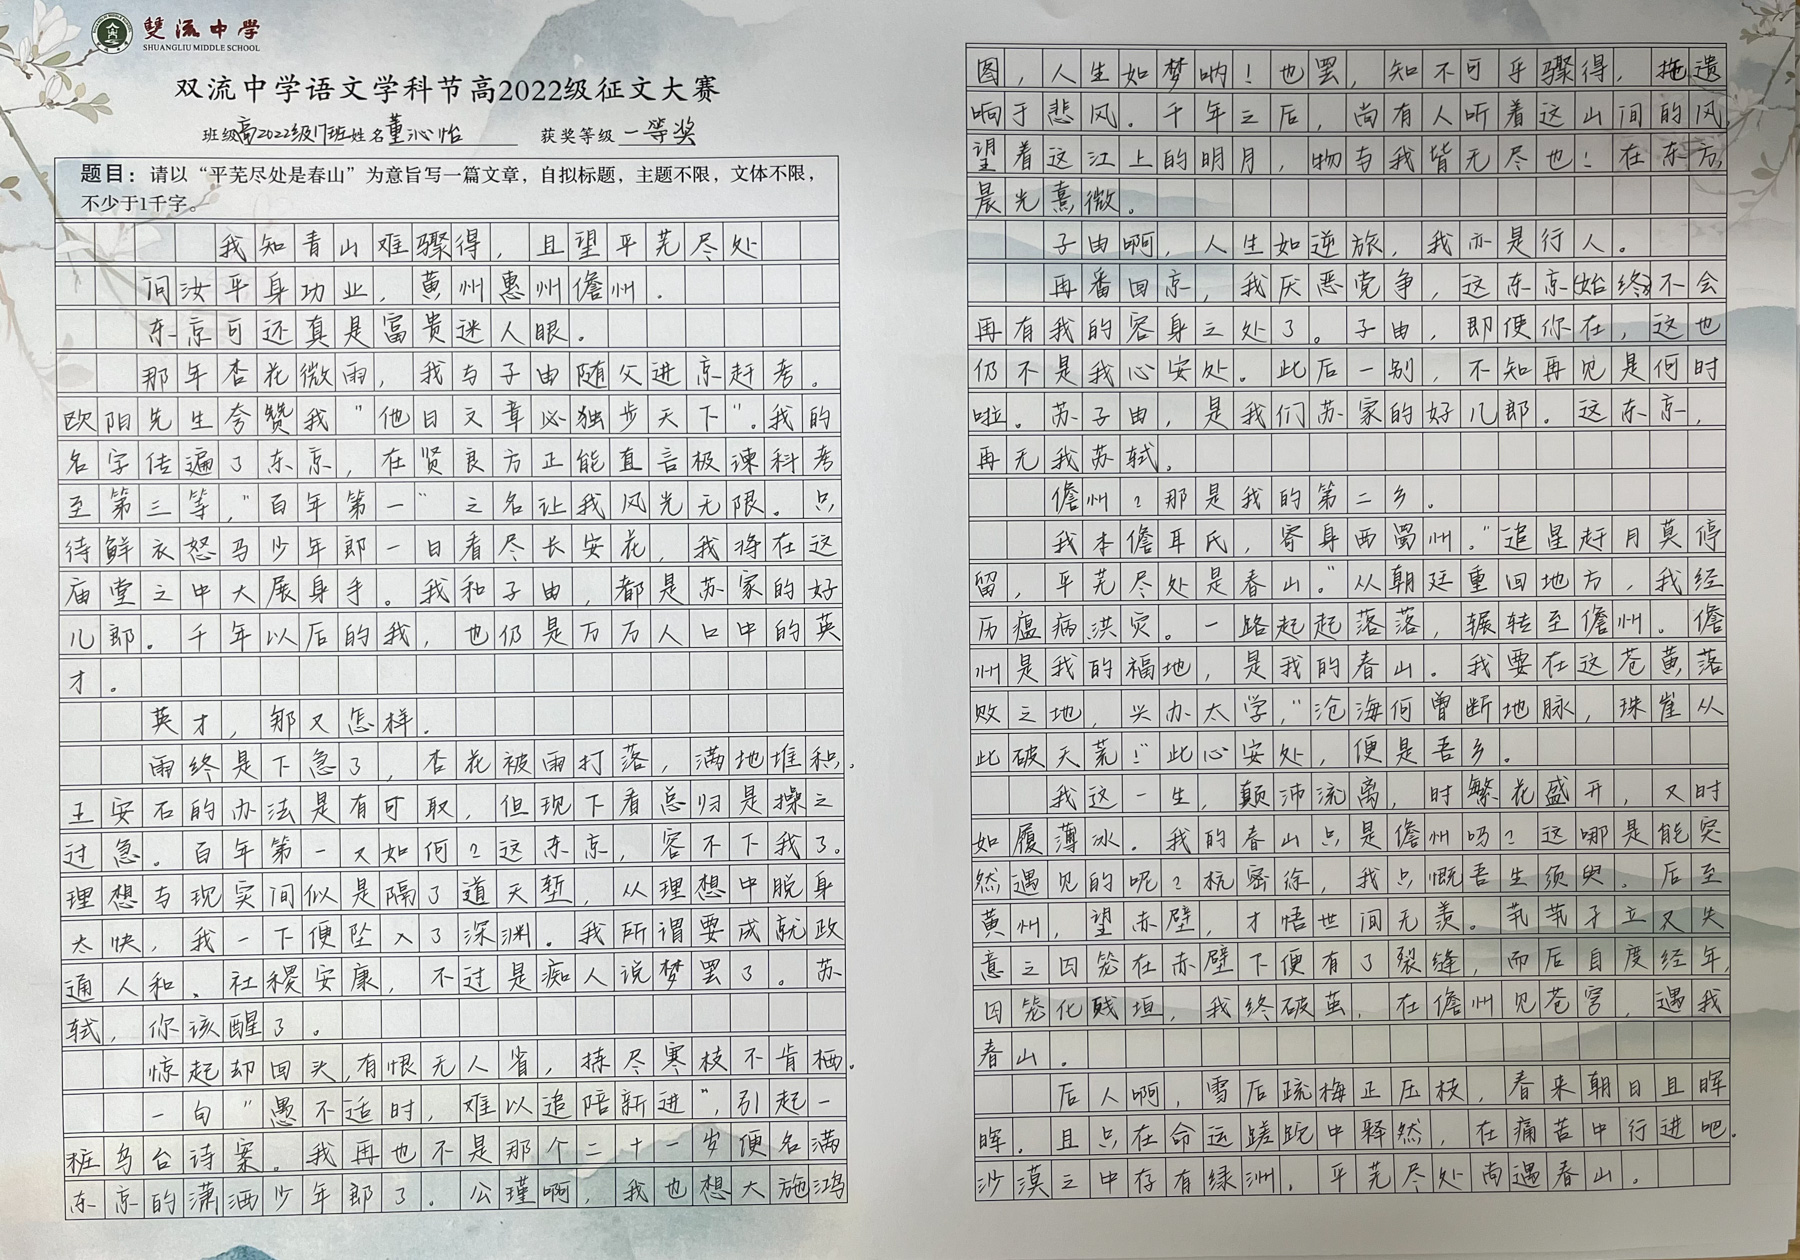 雙流中学
SHUANGLIU MIDDLE SCHOOL
双流中学语文学科节高2022级征文大赛
班级高2022级17班姓名董沁怡 获奖等级一等奖
题目：请以“平芜尽处是春山”为意旨写一篇文章，自拟标题，主题不限，文体不限，
不少于1千字。
我知青山难骤得，且望平芜尽处
问汝平身功业，黄州惠州儋州．
东京可还真是富贵迷人眼。
那年杏花微雨，我与子由随父进京赶考。
欧阳先生夸赞我“他日文章必独步天下”。我的
名字传遍了东京，在贤良方正能直言极谏科考
至第三等，“百年第一”之名让我风光无限。只
待鲜衣怒马少年郎一日看尽长安花，我将在这
庙堂之中大展身手。我和子由，都是苏家的好
儿郎。千年以后的我，也仍是万万人口中的英
才。
英才，那又怎样．
雨终是下急了，杏花被雨打落，满地堆积．
王安石的办法是有可取，但现下看总归是操之
过急。百年第一又如何？这东京，容不下我了．
理想与现实间似是隔了道天堑，从理想中脱身
太快，我一下便坠入了深渊。我所谓要成就政
通人和、社稷安康，不过是痴人说梦罢了。苏
轼，你该醒了。
惊起却回头，有恨无人省，拣尽寒枝不肯栖．
一句“愚不适时，难以追陪新进”，引起一
桩乌台诗案。我再也不是那个二十一岁便名满
东京的潇洒少年郎了．公瑾啊，我也想大施鸿
图，人生如梦呐！也罢，知不可乎骤得，拖遗
响于悲风．千年之后，尚有人听着这山间的风，
望着这江上的明月，物与我皆无尽也！在东方，
晨光熹微。
子由啊，人生如逆旅，我亦是行人。
再番回京，我厌恶党争，这东京(始终)不会
再有我的容身之处了。子由，即便你在，这也
仍不是我心安处．此后一别，不知再见是何时
啦．苏子由，是我们苏家的好儿郎．这东京，
再无我苏轼。
儋州？那是我的第二乡。
我本儋耳氏，寄身西蜀州．“追星赶月莫停
留，平芜尽处是春山。”从朝廷重回地方，我经
历瘟病洪灾。一路起起落落，辗转至儋州．儋
州是我的福地，是我的春山．我要在这苍黄落
败之地，兴办太学，“沧海何曾断地脉，珠崖从
此破天荒！”此心安处，便是吾乡．
我这一生，颠沛流离，时繁花盛开，又时
如履薄冰．我的春山只是儋州吗？这哪是能突
然遇见的呢？杭密徐，我只慨吾生须臾．后至
黄州，望赤壁，才悟世间无羡。茕茕孑立又失
意之囚笼在赤壁下便有了裂缝，而后自度经年，
囚笼化残垣，我终破茧，在儋州见苍穹，遇我
春山．
后人啊，雪后疏梅正压枝，春来朝日且晖
晖．且只在命运蹉跎中释然，在痛苦中行进吧．
沙漠之中存有绿洲，平芜尽处尚遇春山．